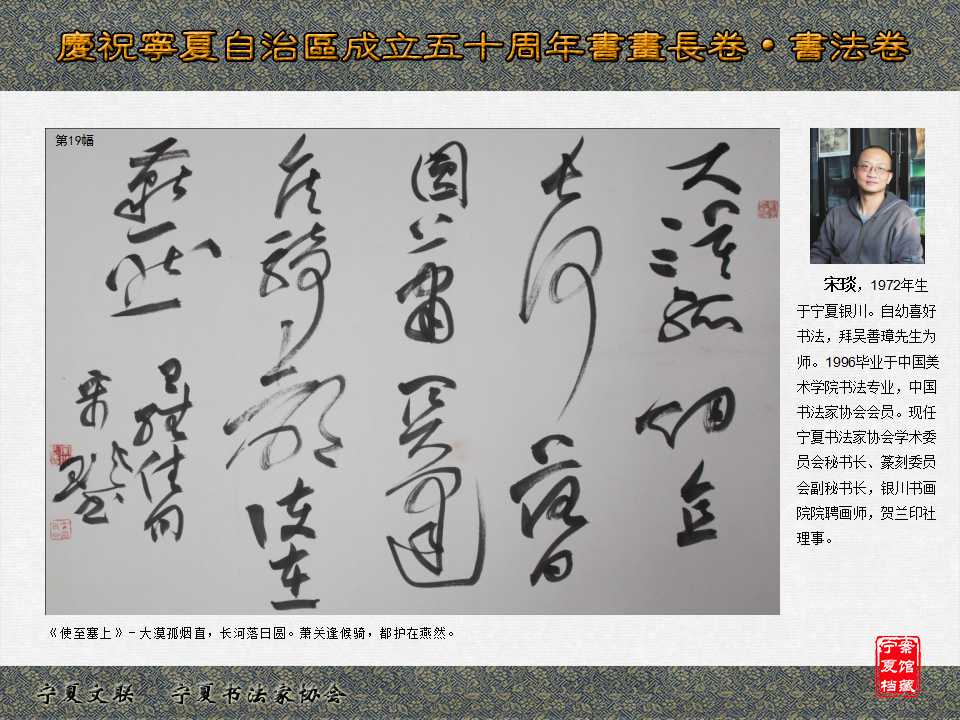 慶祝寧夏自治區成立五十周年書畫長卷·書法卷
第19幅
大漠孤烟直
長河落日
圆萧关逢
候骑都护在
燕然
佳句
宋琰
宋琰，1972年生
于宁夏银川。自幼喜好
书法，拜吴善璋先生为
师。1996毕业于中国美
术学院书法专业，中国
书法家协会会员。现任
宁夏书法家协会学术委
员会秘书长、篆刻委员
会副秘书长，银川书画
院院聘画师，贺兰印社
理事。
《使至塞上》-大漠孤烟直，长河落日圆。萧关逢候骑，都护在燕然。
宁夏档
案馆藏
宁夏文联 宁夏书法家协会